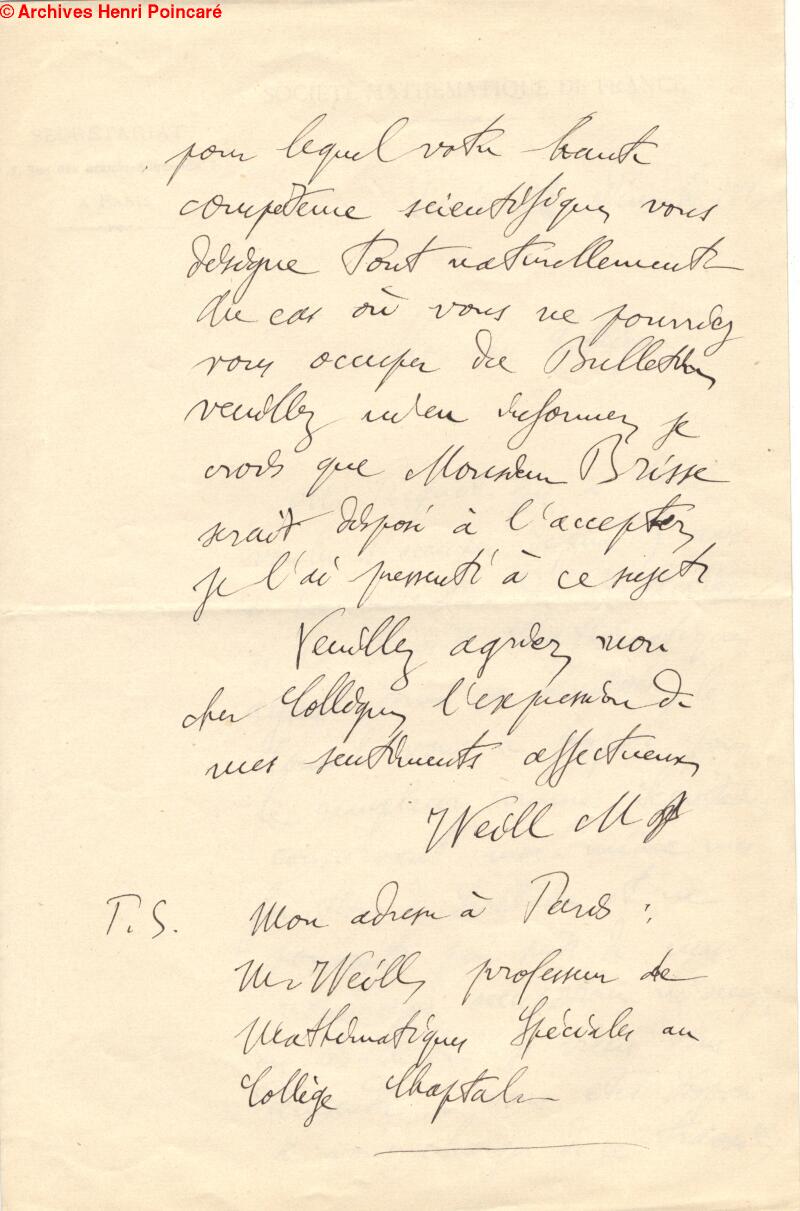 © Archives Henri Poincaré
SOCIÉTÉ MATHÉMATIQUE DE FRANCE
SECRÉTARIAT
A PARIS
pour lequel votre haute
compétence scientifique vous
désigne tout naturellement
Au cas où vous ne pourriez
vous occuper du Bulletin
veuillez m'en informer, je
crois que Monsieur Brisse
serait disposé à l'accepter,
je l'ai pressenti à ce sujet
Veuillez agréer, mon
cher Collègue, l'expression de
mes sentiments affectueux
Weill M
P. S. Mon adresse à Paris :
Mr Weill, professeur de
Mathématiques Spéciales au
Collège Chaptal